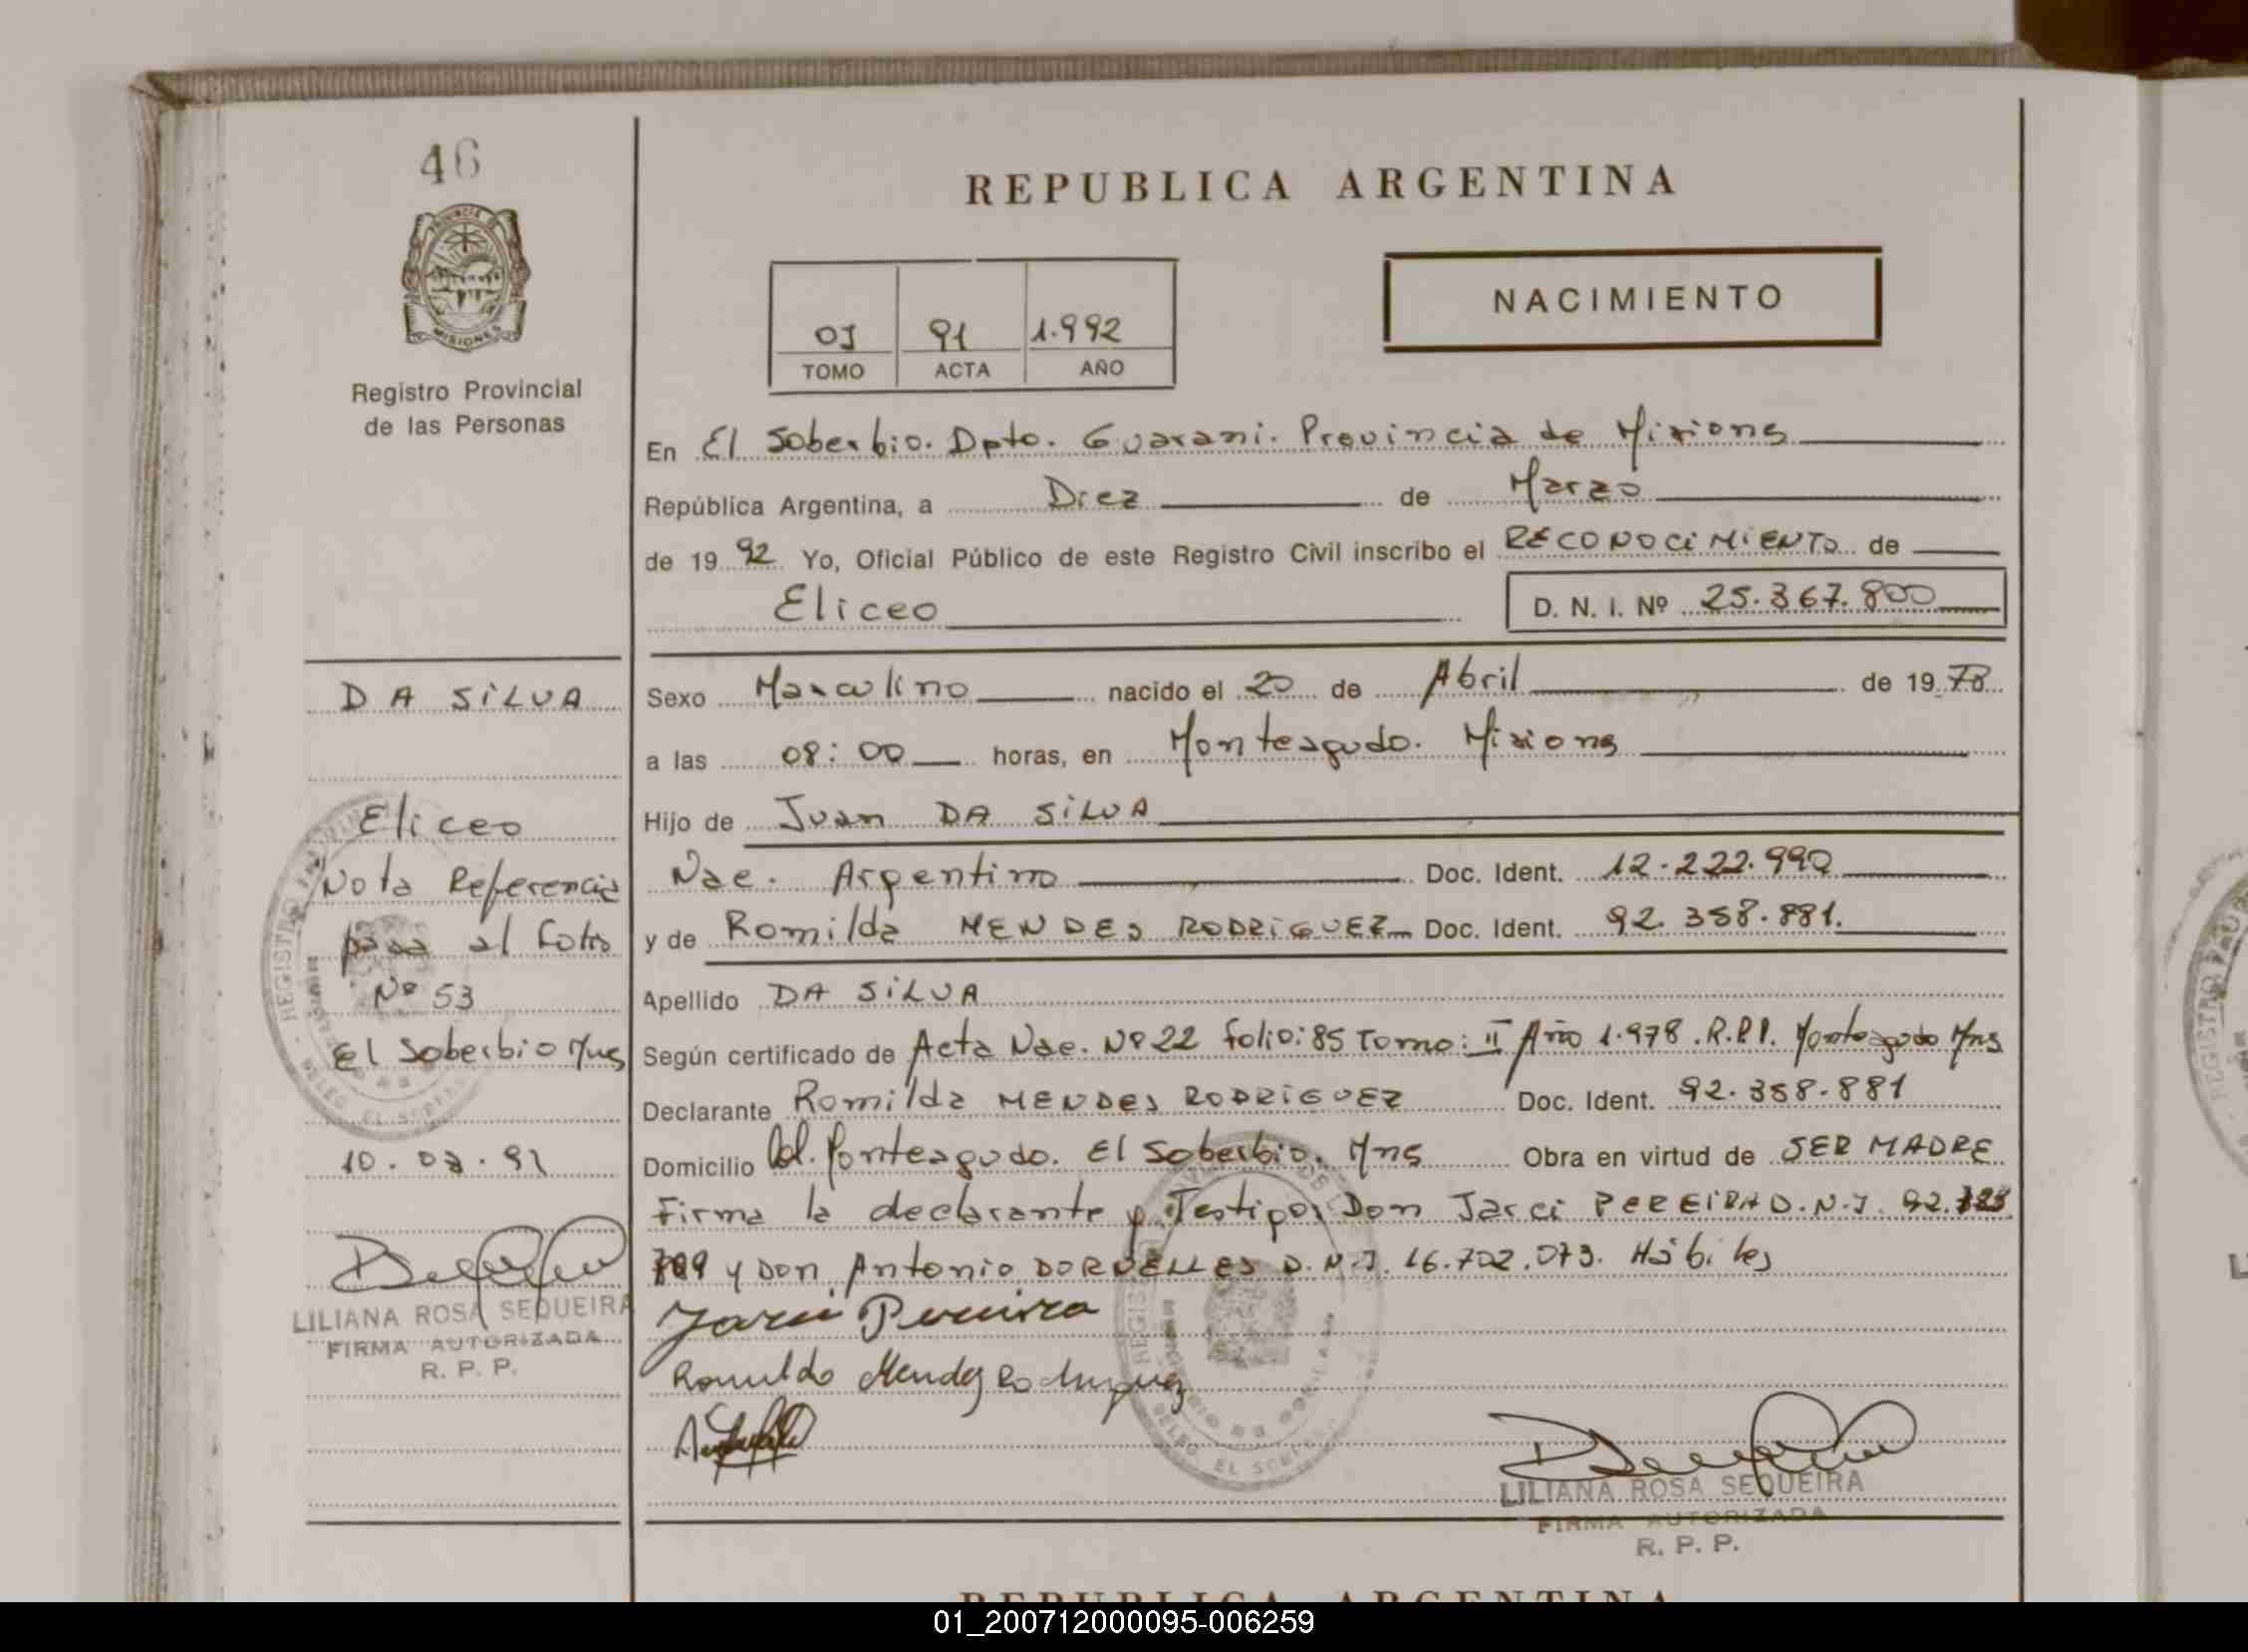 46
PROVINCIA DE
MISIONES
Registro Provincial
de las Personas
DA SILVA
Eliceo
Nota Referencia
pasa al Folio
Nº 53
El Soberbio Mns
10.03.92
LILIANA ROSA SEQUEIRA
FIRMA AUTORIZADA
R. P. P.
REPUBLICA ARGENTINA
NACIMIENTO
OJ 91 1.992
TOMO ACTA AÑO
En El Soberbio. Dpto. Guarani. Provincia de Misiones
República Argentina, a Diez de Marzo
de 1992 Yo, Oficial Público de este Registro Civil inscribo el RECONOCIMIENTO de
Eliceo D. N. I. Nº 25.367.800
Sexo Masculino nacido el 20 de Abril de 1978
a las 08:00 horas, en Monteagudo. Misiones
Hijo de Juan DA SILVA
Nac. Argentino Doc. Ident. 12.222.990
y de Romilda MENDES RODRIGUEZ Doc. Ident. 92.358.881.
Apellido DA SILVA
Según certificado de Acta Nac. Nº 22 Folio: 85 Tomo: II Año 1.978. R.P.P. Monteagudo Mns
Declarante Romilda MENDES RODRIGUEZ Doc. Ident. 92.358.881
Domicilio Col. Monteagudo. El Soberbio. Mns Obra en virtud de SER MADRE
Firma la declarante y Testigos Don Jarci PEREIRA D.N.I. 92.
709 y Don Antonio DORNELLES D.N.I. 16.702.073. Hábiles
Jarci Pereira
Romildo Mendes Rodriguez
LILIANA ROSA SEQUEIRA
FIRMA AUTORIZADA
R. P. P.
REPUBLICA ARGENTINA
01_200712000095-006259